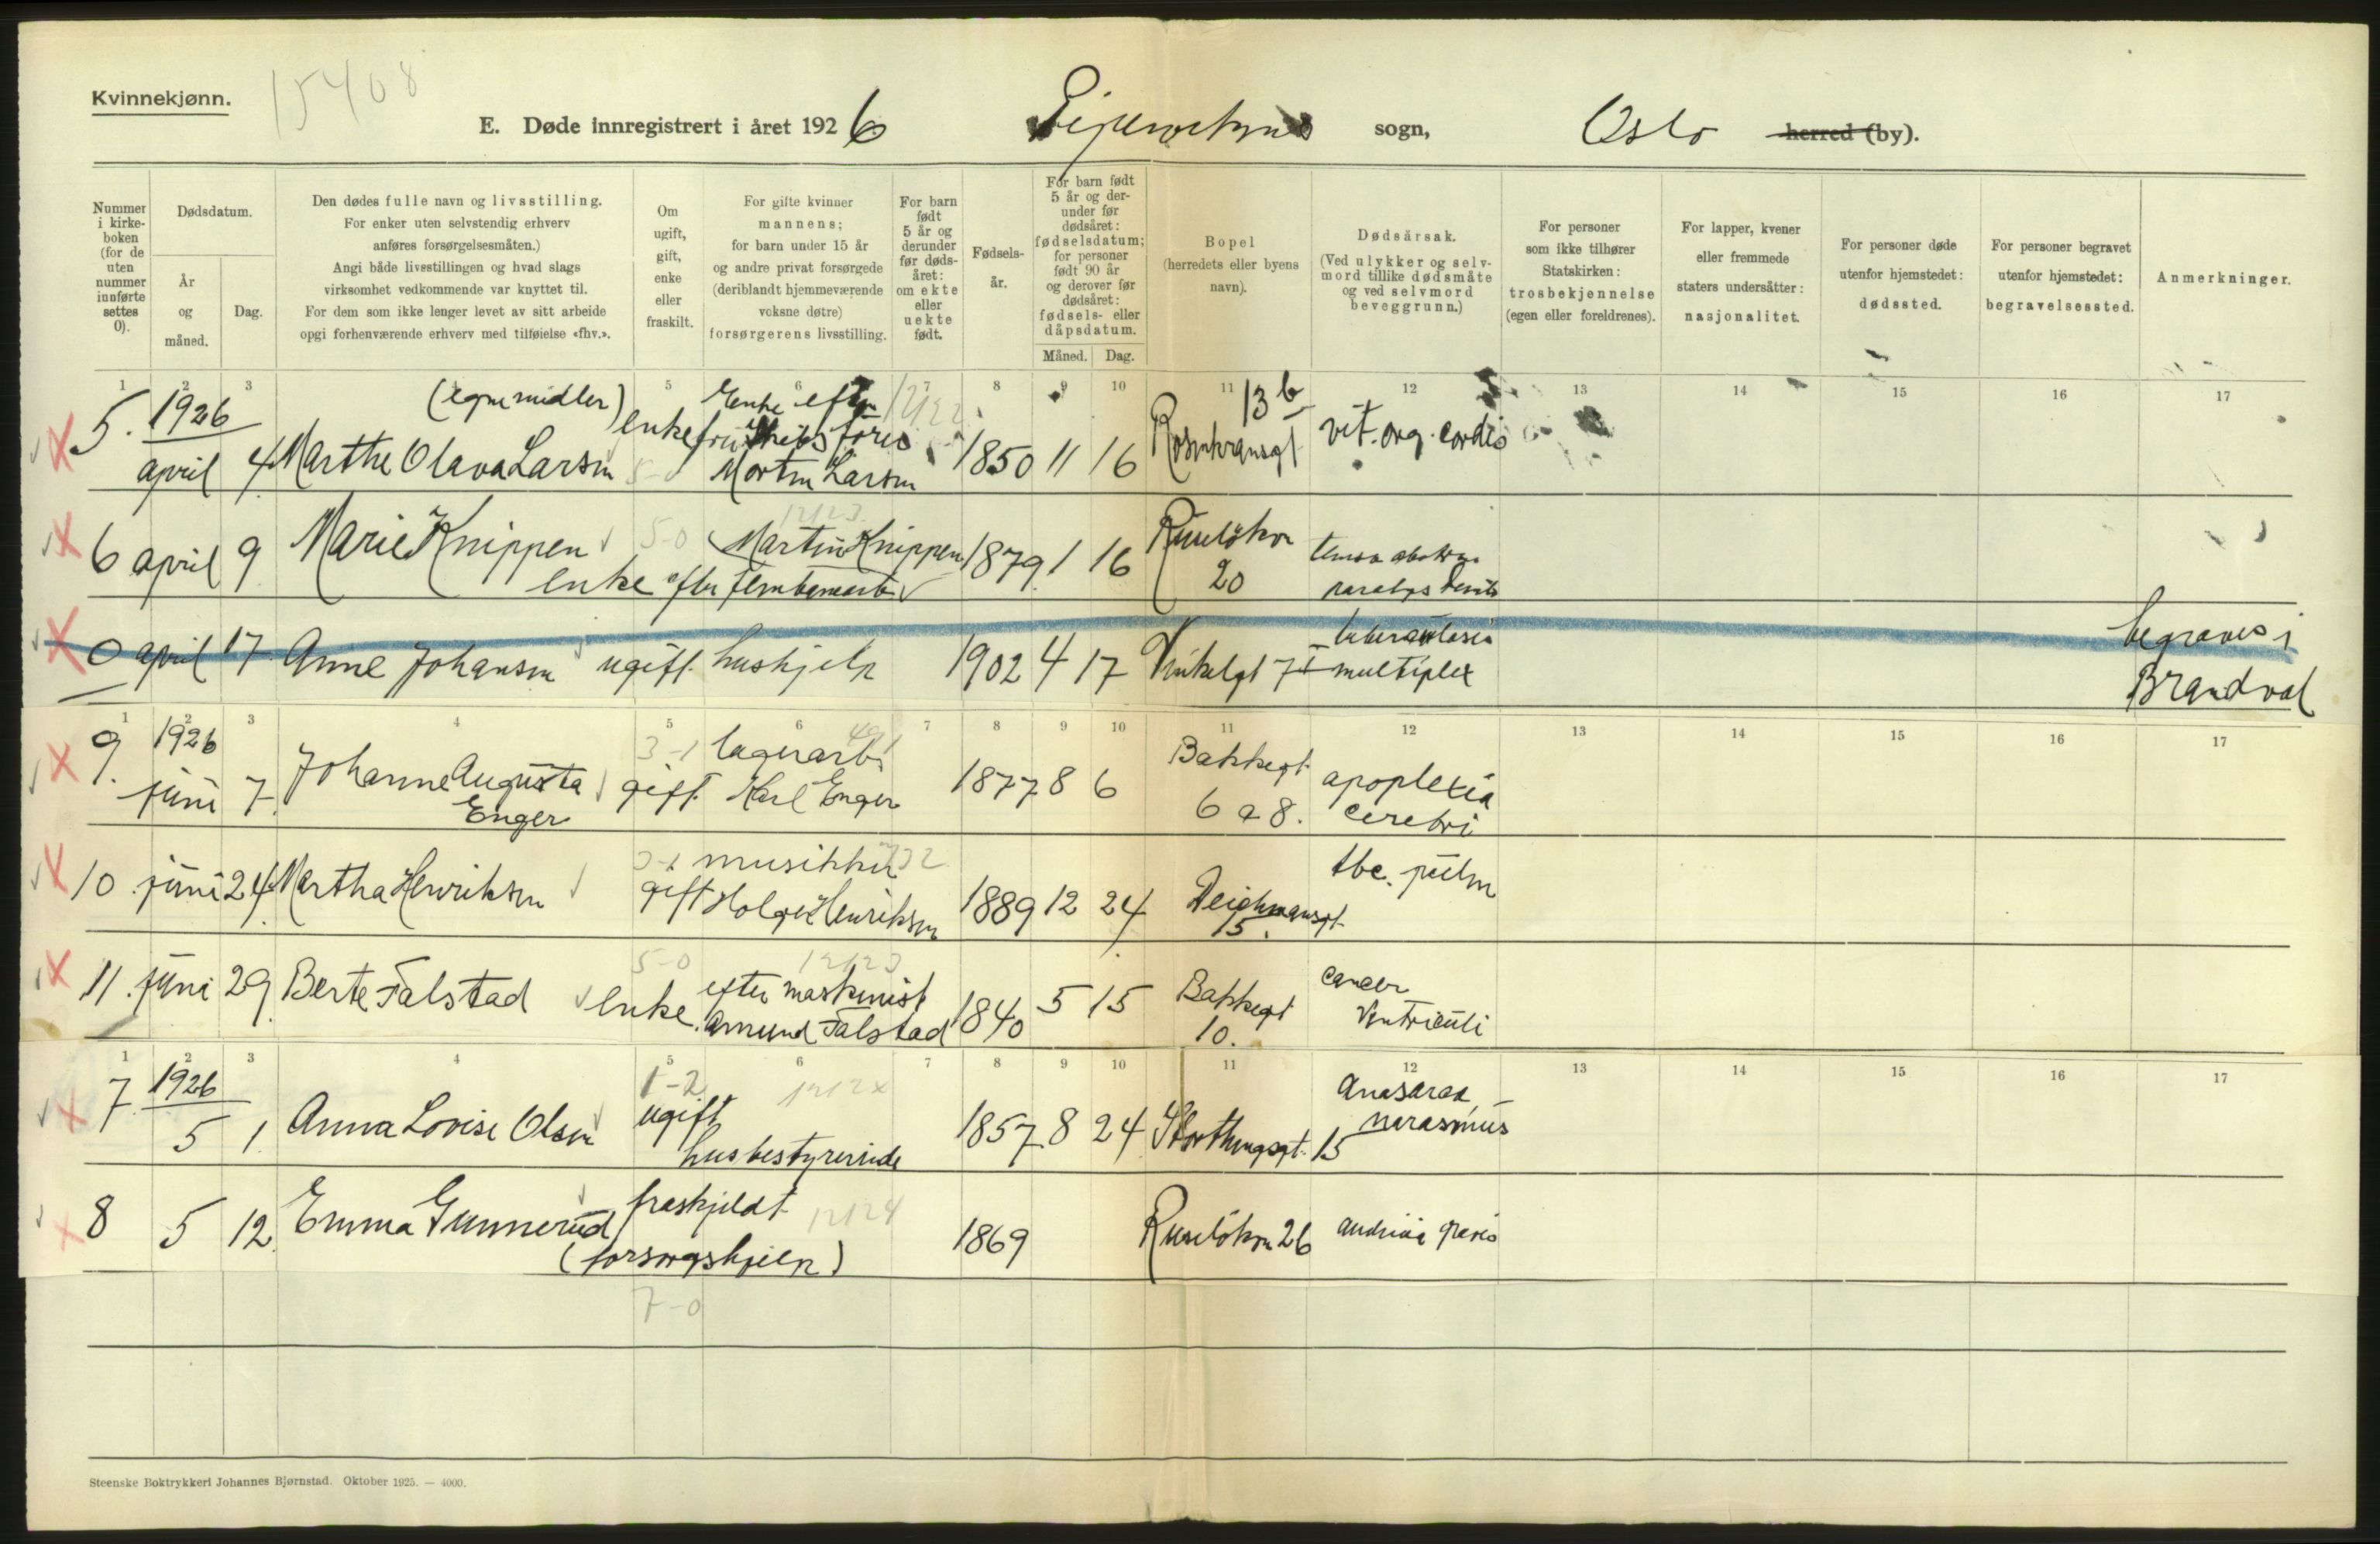 Kvinnekjønn.
15408
E. Døde innregistrert i året 1926
sogn,
Oslo
herred (by).
Nummer i kirke-boken (for de uten nummer innførte settes 0).
Dødsdatum.
År og måned.
Dag.
Den dødes fulle navn og livsstilling.
For enker uten selvstendig erhverv
anføres forsørgelsesmåten.)
Angi både livsstillingen og hvad slags
virksomhet vedkommende var knyttet til.
For dem som ikke lenger levet av sitt arbeide
opgi forhenværende erhverv med tilføielse «fhv.».
Om ugift, gift, enke eller fraskilt.
For gifte kvinner
mannens;
for barn under 15 år
og andre privat forsørgede
(deriblandt hjemmeværende
voksne døtre)
forsørgerens livsstilling.
For barn født 5 år og derunder før døds-året: om ekte eller uekte født.
Fødsels-år.
For barn født 5 år og der-under før dødsåret: fødselsdatum; for personer født 90 år og derover før dødsåret: fødsels- eller dåpsdatum.
Måned. Dag.
Bopel
(herredets eller byens
navn).
Dødsårsak.
(Ved ulykker og selv-
mord tillike dødsmåte
og ved selvmord
beveggrunn.)
For personer
som ikke tilhører
Statskirken:
trosbekjennelse
(egen eller foreldrenes).
For lapper, kvener
eller fremmede
staters undersåtter:
nasjonalitet.
For personer døde
utenfor hjemstedet:
dødssted.
For personer begravet
utenfor hjemstedet:
begravelsessted.
Anmerkninger.
1 2 3 5 6 7 8 9 10 11 12 13 14 15 16 17
5. 1926 (egne midler) enke Enke efter 13 b
april 4 Marthe Olava Larsen Morten Larsen 1850 11 16 Rosenkransgt vit. org. cordis
6 april 9 Marie Knippen 5-0 Martin Knippen 1879 1 16 Ruseløkvn 20
enke efter
0 april 17 Anne Johansen ugift hushjelp 1902 4 17 Vinkelgt 7 I tuberculosis multiplex begraves i Brandval
1 2 3 4 5 6 7 8 9 10 11 12 13 14 15 16 17
9. 1926 juni 7 Johanne Augusta Enger 3-1 gift lagerarb. Karl Enger 1877 8 6 Bakkegt 6 a 8. apoplexia cerebri
10 juni 24 Martha Henriksen gift musikker Holger Henriksen 1889 12 24 Deichmansgt 15. tbc. pulm
11. juni 29 Berte Falstad 5-0 enke efter maskinist Amund Falstad 1840 5 15 Bakkegt 10. cancer ventriculi
1 2 3 4 5 6 7 8 9 10 11 12 13 14 15 16 17
7 1926 5 1 Anna Lovise Olsen 1-2 ugift husbestyrerinde 1857 8 24 Storthingsgt. 15 Anasarca marasmus
8 5 12 Emma Gunnerud fraskjeldt (forsorgshjelp) 1869 Ruseløkvn 26
7-0
Steenske Boktrykkeri Johannes Bjørnstad. Oktober 1925. — 4000.